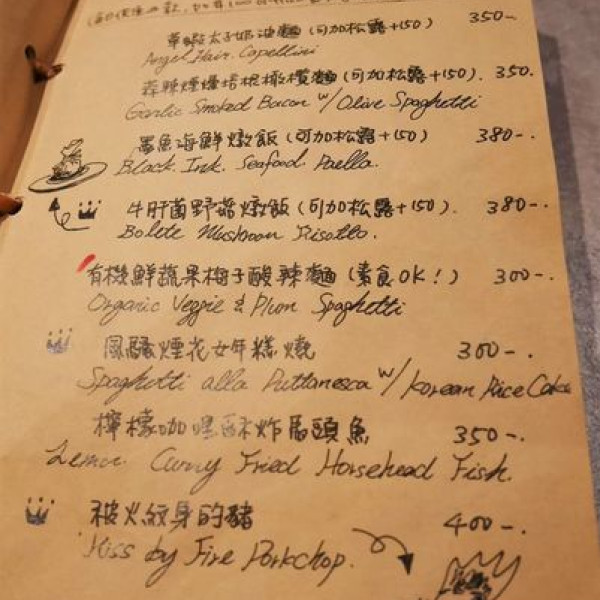 草蝦太子奶油麵(可加松露+150) 350-.
Angel Hair Capellini
蒜辣煙燻培根橄欖麵(可加松露+150). 350.
Garlic Smoked Bacon w/ Olive Spaghetti
墨魚海鮮燉飯(可加松露+150) 380-.
Black Ink Seafood Paella.
牛肝菌野菇燉飯(可加松露+150). 380-.
Bolete Mushroom Risotto.
有機鮮蔬果梅子酸辣麵(素食OK!) 300-.
Organic Veggie & Plum Spaghetti
風騷煙花女年糕燒 360-.
Spaghetti alla Puttanesca w/ Korean Rice Cake
檸檬咖哩酥炸馬頭魚 350-.
Lemon Curry Fried Horsehead Fish.
被火紋身的豬 400-.
Kiss by Fire Porkchop.